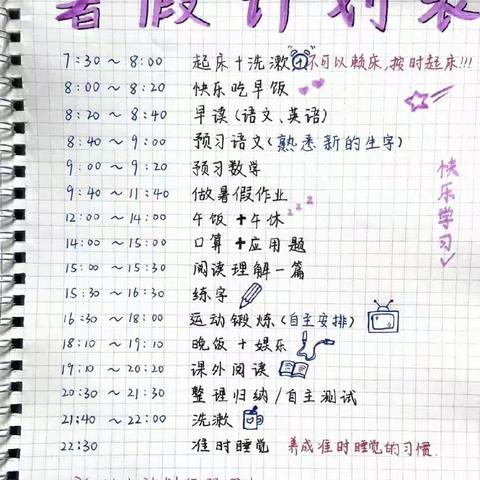 暑假计划表
7:30 ～ 8:00 起床+洗漱 不可以赖床,按时起床!!!
8:00 ～ 8:20 快乐吃早饭
8:20 ～ 8:40 早读(语文、英语)
8:40 ～ 9:00 预习语文(熟悉新的生字)
9:00 ～ 9:20 预习数学
9:40 ～ 11:40 做暑假作业
12:00 ～ 14:00 午饭+午休 zzz
14:00 ～ 15:00 口算+应用题
15:00 ～ 15:30 阅读理解一篇
15:30 ～ 16:30 练字
16:30 ～ 18:00 运动锻炼(自主安排)
18:10 ～ 19:10 晚饭+娱乐
19:10 ～ 20:20 课外阅读
20:30 ～ 21:30 整理归纳/自主测试
21:40 ～ 22:00 洗漱
22:30 准时睡觉 养成准时睡觉的习惯.
快乐学习